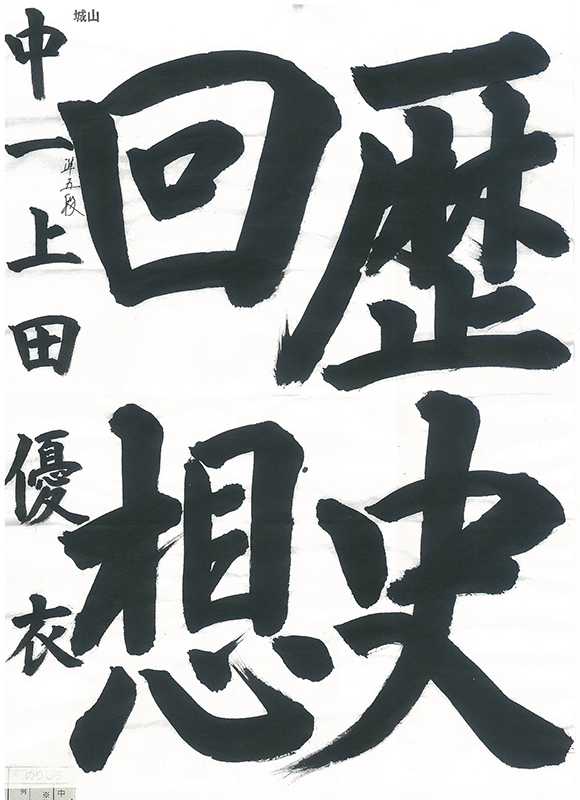 歴史
回想
城山
準五段
中一上田優衣
のりしろ
中
※
例